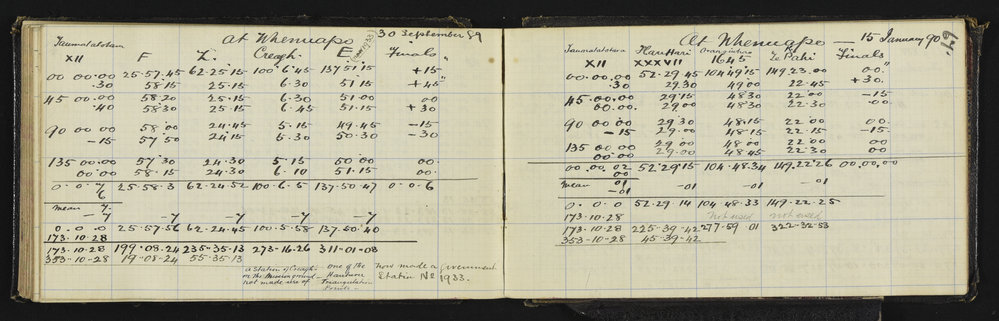 At Whenuapo
30 September 89
XII F L Creagh E Finals
00 00.00 25.57.45 62.25.15 100.6.45 137.51.15 +15
.30 58.15 25.15 6.30 51.15 +45
45 00.00 58.20 25.15 6.30 51.00 00
.40 58.30 25.15 6.45 51.15 +30
90 00 00 58.00 24.45 5.15 49.45 -15
-15 57.50 24.15 5.30 50.30 -30
135 00.00 57.30 24.30 5.15 50.00 00.
00.00 58.15 24.30 6.10 51.15 00.
0.0.7 25.58.3 62.24.52 100.6.5 137.50.47 0.0.6
6
mean 7
-7 -7 -7 -7 -7
0.0.0 25.57.56 62.24.45 100.5.58 137.50.40
173.10.28
173.10.28 199.08.24 235.35.13 273.16.26 311.01.08
353.10.28 19.08.24 55.35.13
a Station of Creagh's
on the Mission ground
not made use of
one of the
Harrison
Triangulation
Points
now made a government
Station No 1933.
At Whenuapo
15 January 90
67.
XII HariHari XXXVII 1645 Te Pahi Finals
00.00.00 52.29.45 104.49.15 149.23.00 00.
30 29.30 49.00 22.45 +30.
45.00.00 29.15 48.30 22.00 -15
00.00. 29.00 48.30 22.30 .00
90 00.00 29.30 48.15 22.00 00.
-15 29.00 48.15 22.15 -15.
135 00.00 29.00 48.00 22.00 00.
00.00 29.00 48.45 22.30 00.
00.00.02 52.29.15 104.48.34 149.22.26 00.00.00
00
mean 01
-01 -01 -01 -01
0.0.0 52.29.14 104.48.33 149.22.25
173.10.28 Not used not used
173.10.28 225.39.42 277.59 01 322.32.53
353.10.28 45.39.42